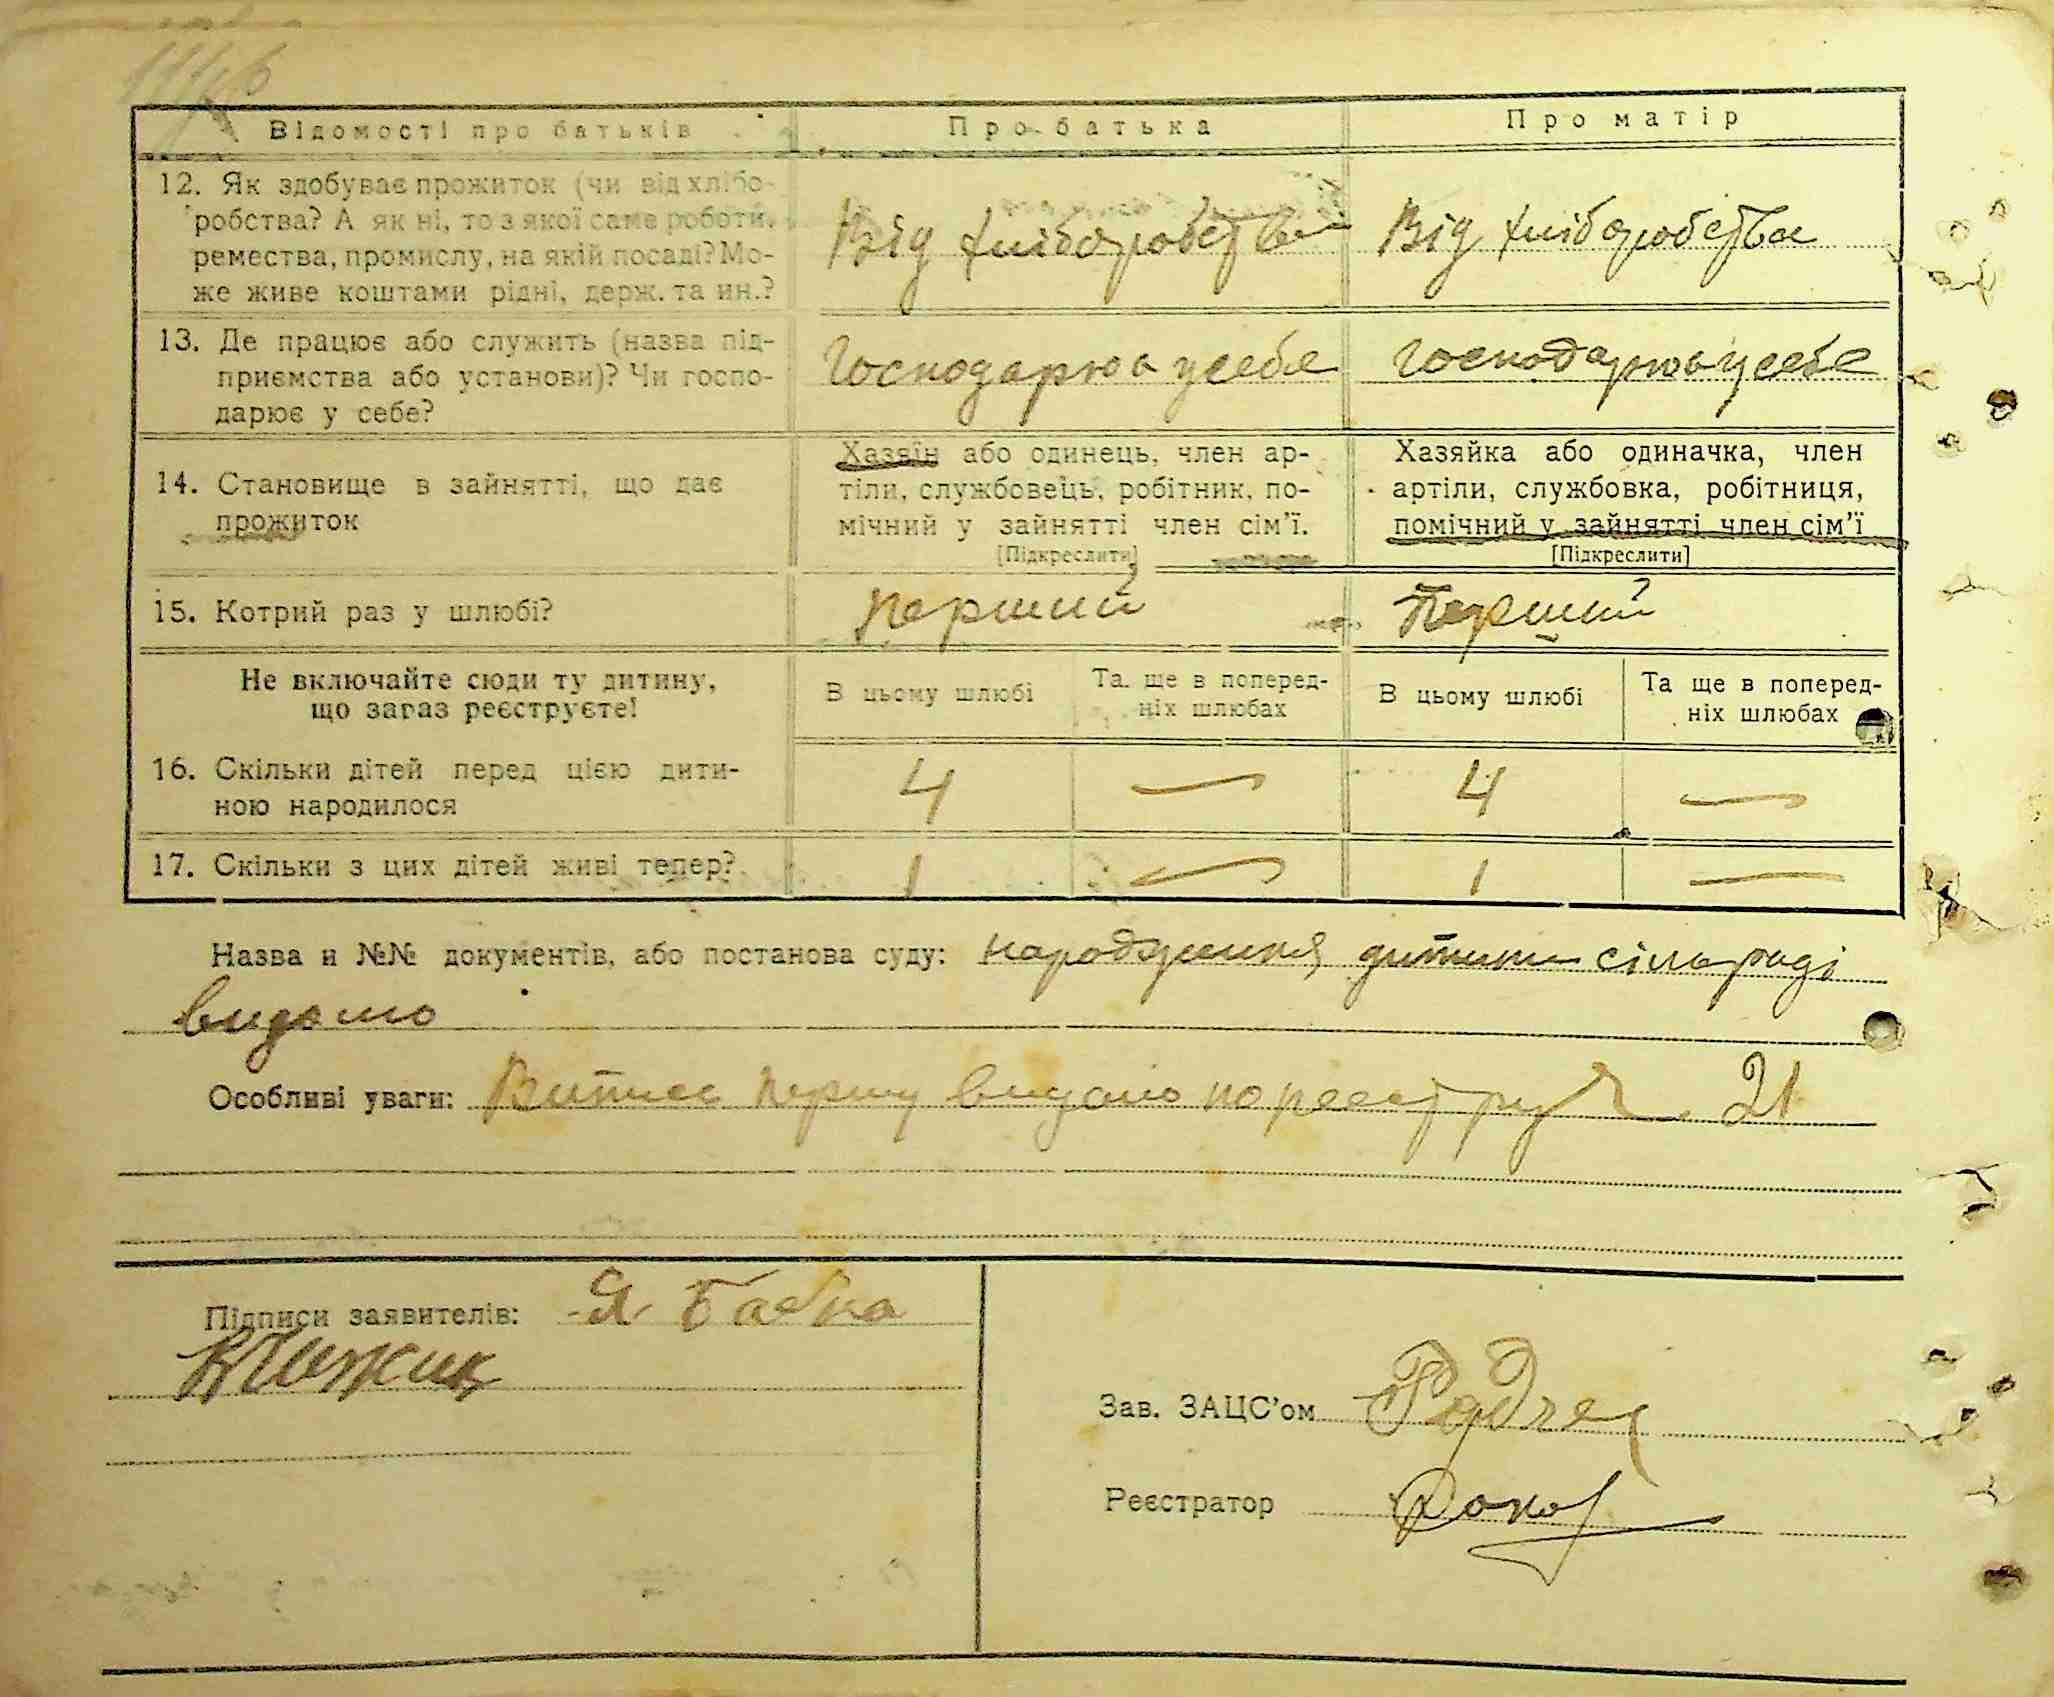 Відомості про батьків Про батька Про матір
12. Як здобуває прожиток (чи від хлібо-
робства? А як ні, то з якої саме роботи,
ремества, промислу, на якій посаді? Мо-
же живе коштами рідні, держ. та ин.?
Від хліборобства Від хліборобства
13. Де працює або служить (назва під-
приємства або установи)? Чи госпо-
дарює у себе?
Господарює у себе Господарює у себе
14. Становище в зайнятті, що дає
прожиток
Хазяїн або одинець, член ар-
тіли, службовець, робітник, по-
мічний у зайнятті член сім’ї.
[Підкреслити]
Хазяйка або одиначка, член
артіли, службовка, робітниця,
помічний у зайнятті член сім’ї
[Підкреслити]
15. Котрий раз у шлюбі? Перший Перший
Не включайте сюди ту дитину,
що зараз реєструєте!
В цьому шлюбі
Та ще в поперед-
ніх шлюбах
В цьому шлюбі
Та ще в поперед-
ніх шлюбах
16. Скільки дітей перед цією дити-
ною народилося
4 — 4 —
17. Скільки з цих дітей живі тепер? 1 — 1 —
Назва и №№ документів, або постанова суду: народження дитини сільраді
видомо
Особливі уваги: Витись першу видано по реєстру 21
Підписи заявителів: Я Бабка
Чижик
Зав. ЗАЦС’ом
Реєстратор